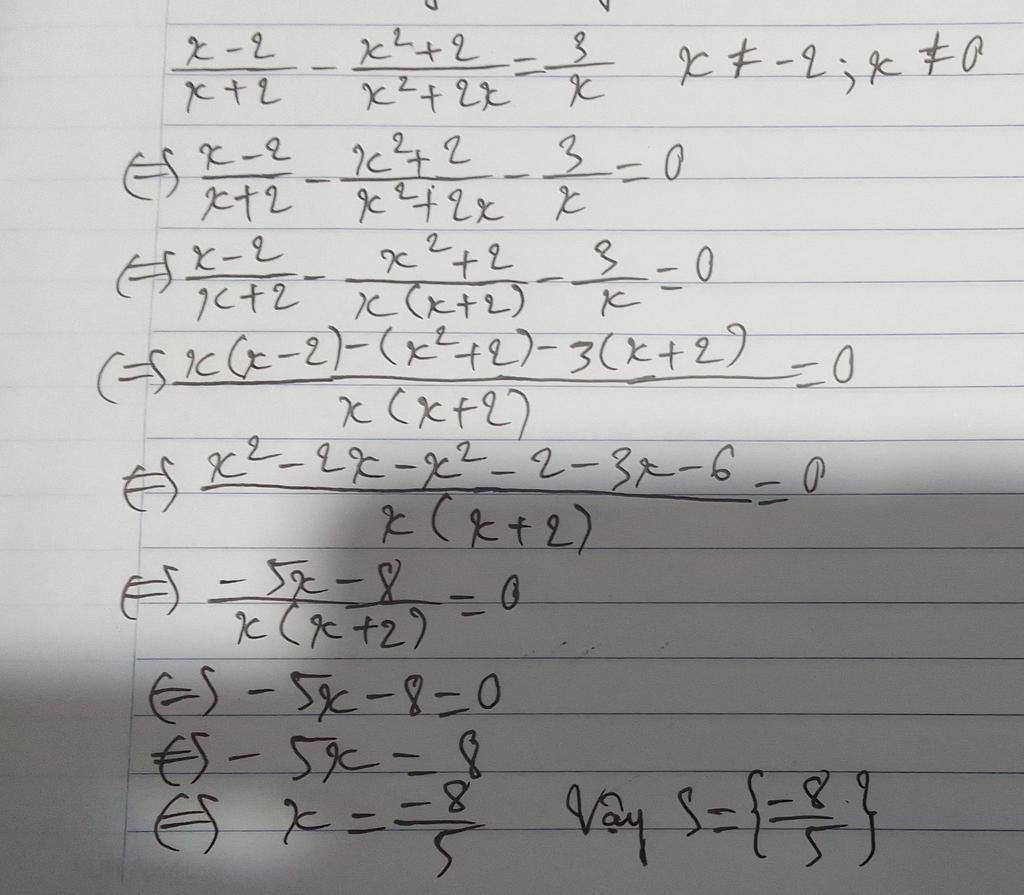 (x-2)/(x+2) - (x²+2)/(x²+2x) = 3/x   x ≠ -2 ; x ≠ 0
⇔ (x-2)/(x+2) - (x²+2)/(x²+2x) - 3/x = 0
⇔ (x-2)/(x+2) - (x²+2)/(x(x+2)) - 3/x = 0
⇔ (x(x-2)-(x²+2)-3(x+2))/(x(x+2)) = 0
⇔ (x²-2x-x²-2-3x-6)/(x(x+2)) = 0
⇔ (-5x-8)/(x(x+2)) = 0
⇔ -5x-8=0
⇔ -5x = 8
⇔ x = -8/5   Vậy S={-8/5}